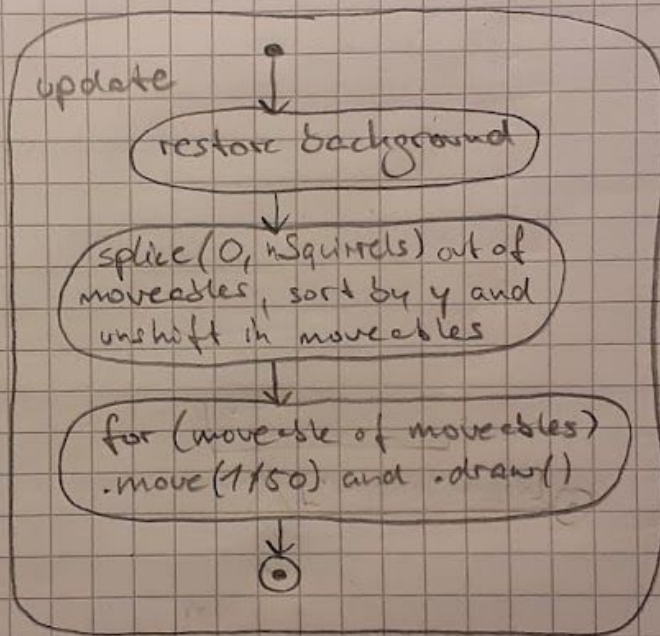 update
restore background
splice(0, nSquirrels) out of
moveables, sort by y and
unshift in moveables
for (moveable of moveables)
.move(1/50) and .draw()